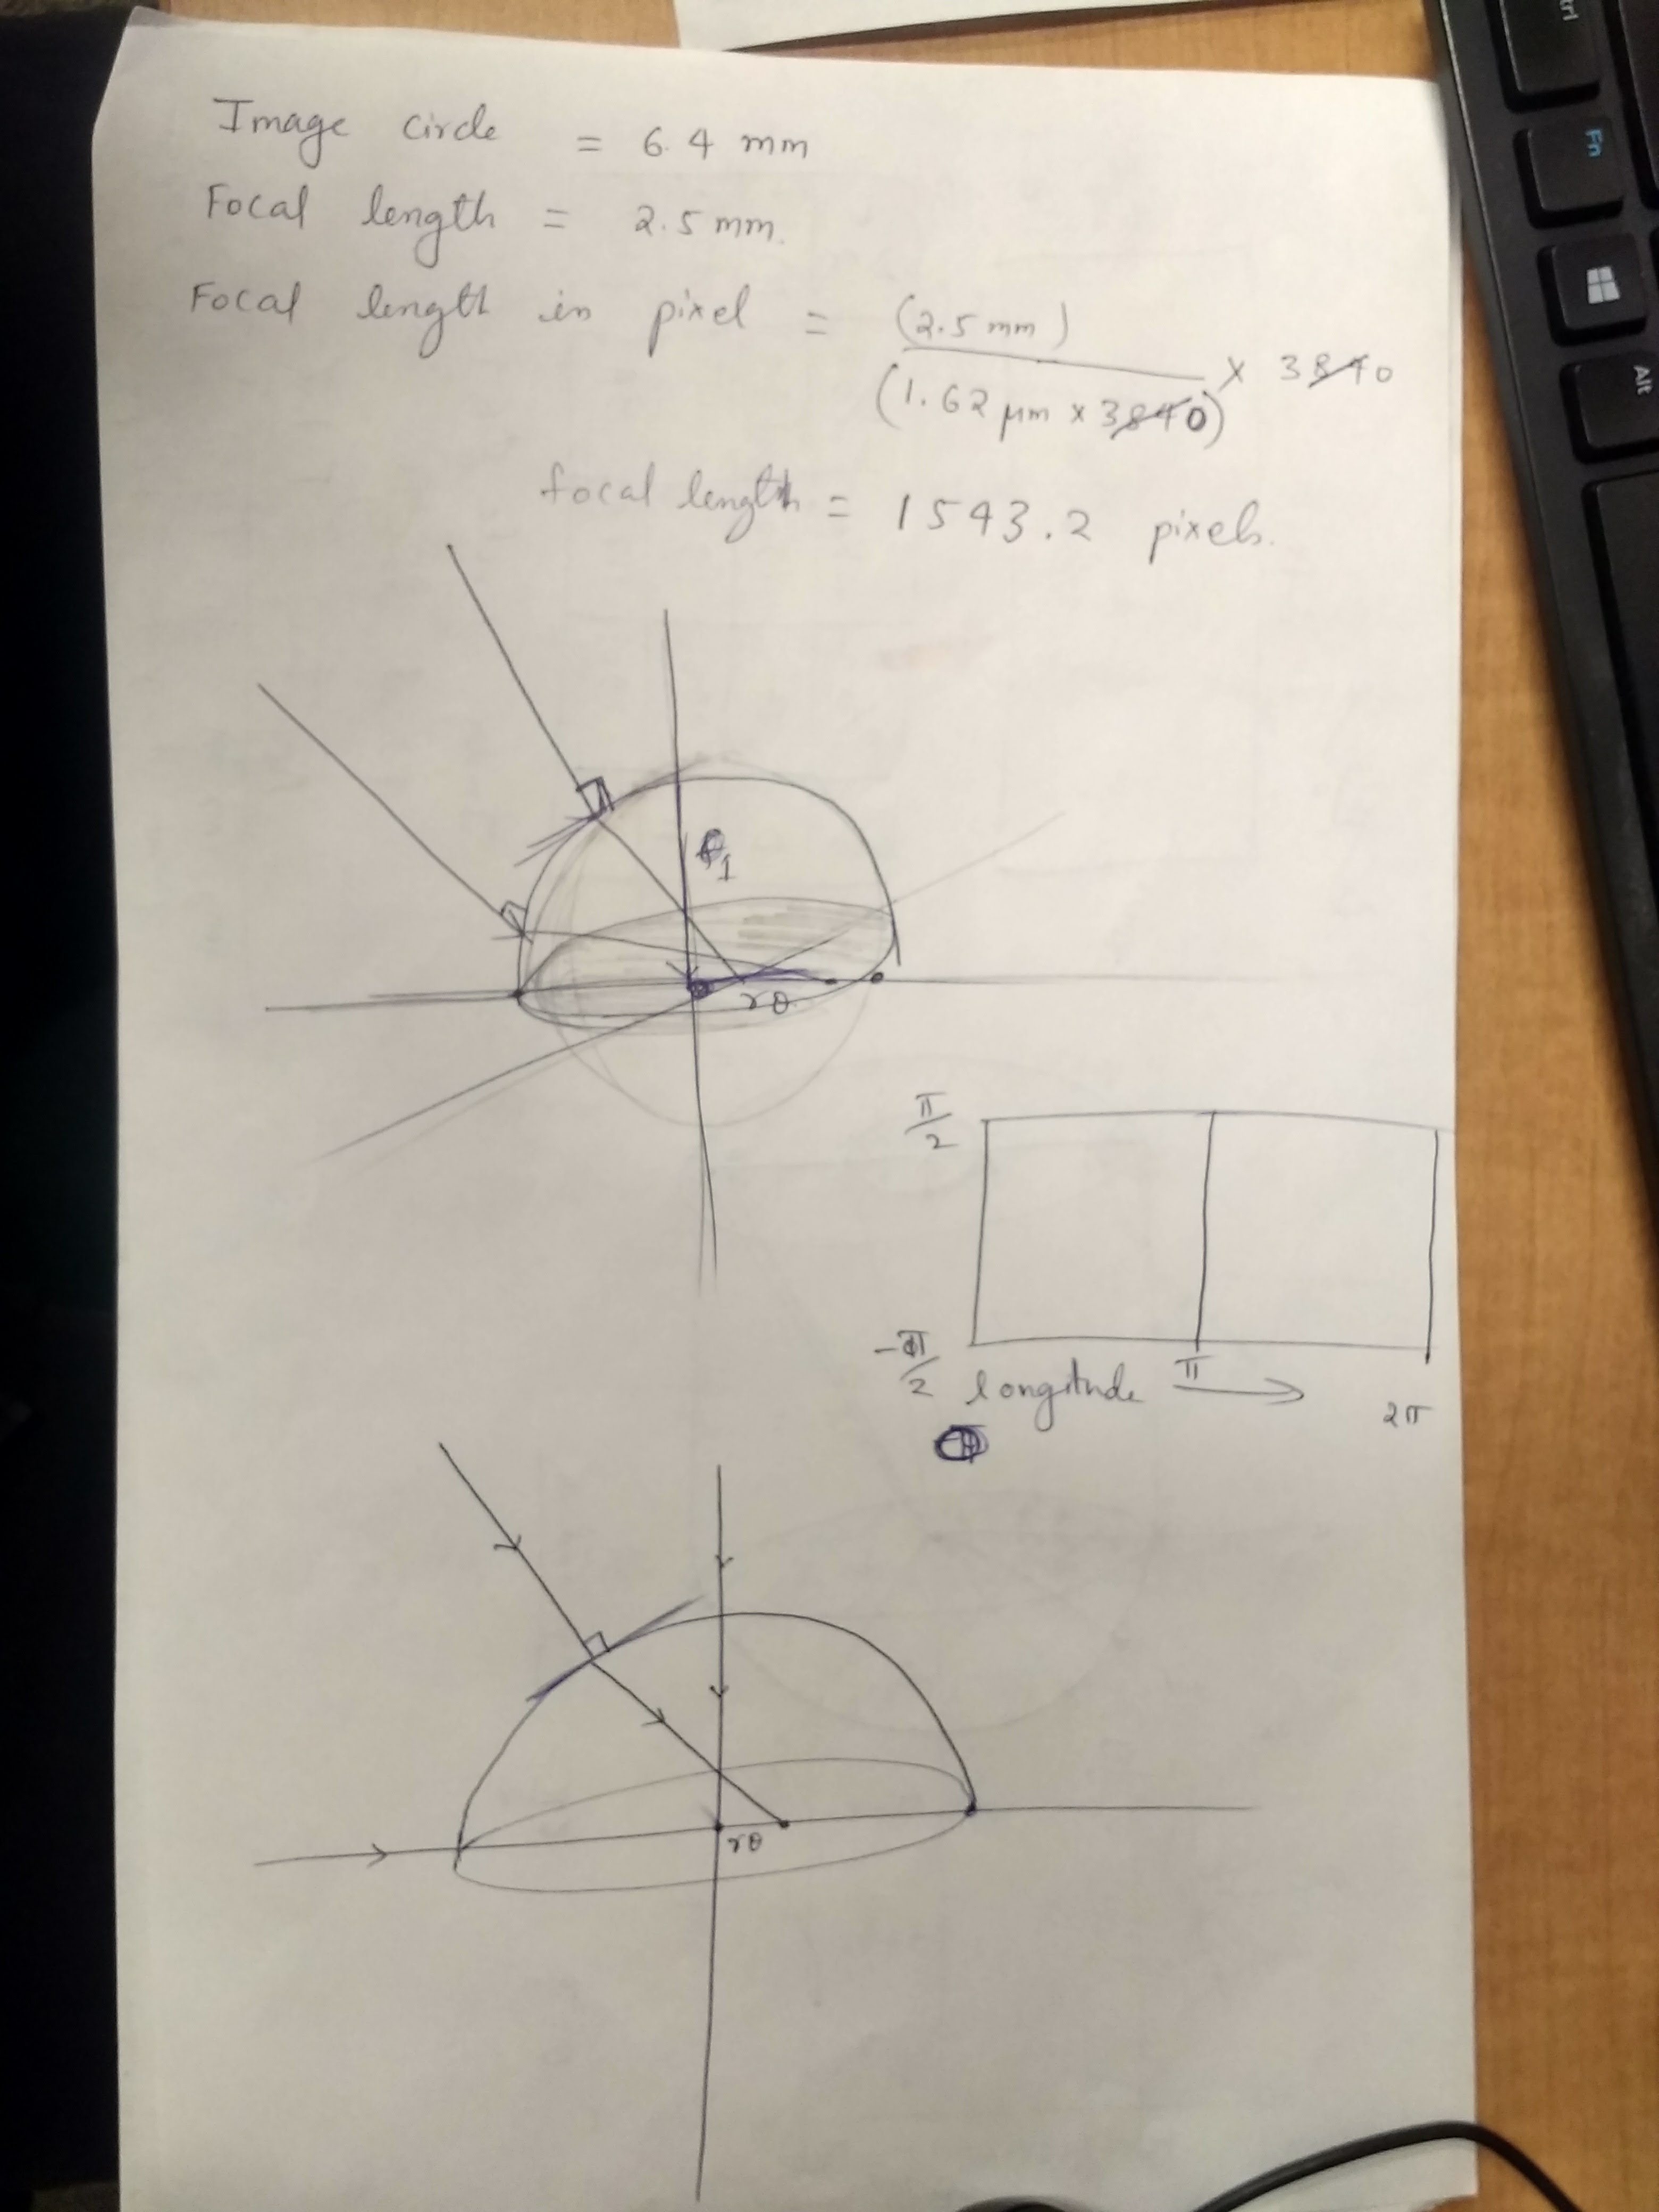 Image circle = 6.4 mm
Focal length = 2.5 mm.
Focal length in pixel = (2.5 mm) / (1.62 μm × 3840) × 3840
focal length = 1543.2 pixels.
θ1
rθ
π/2
-π/2
longitude π →
2π
rθ
trl
Fn
Alt